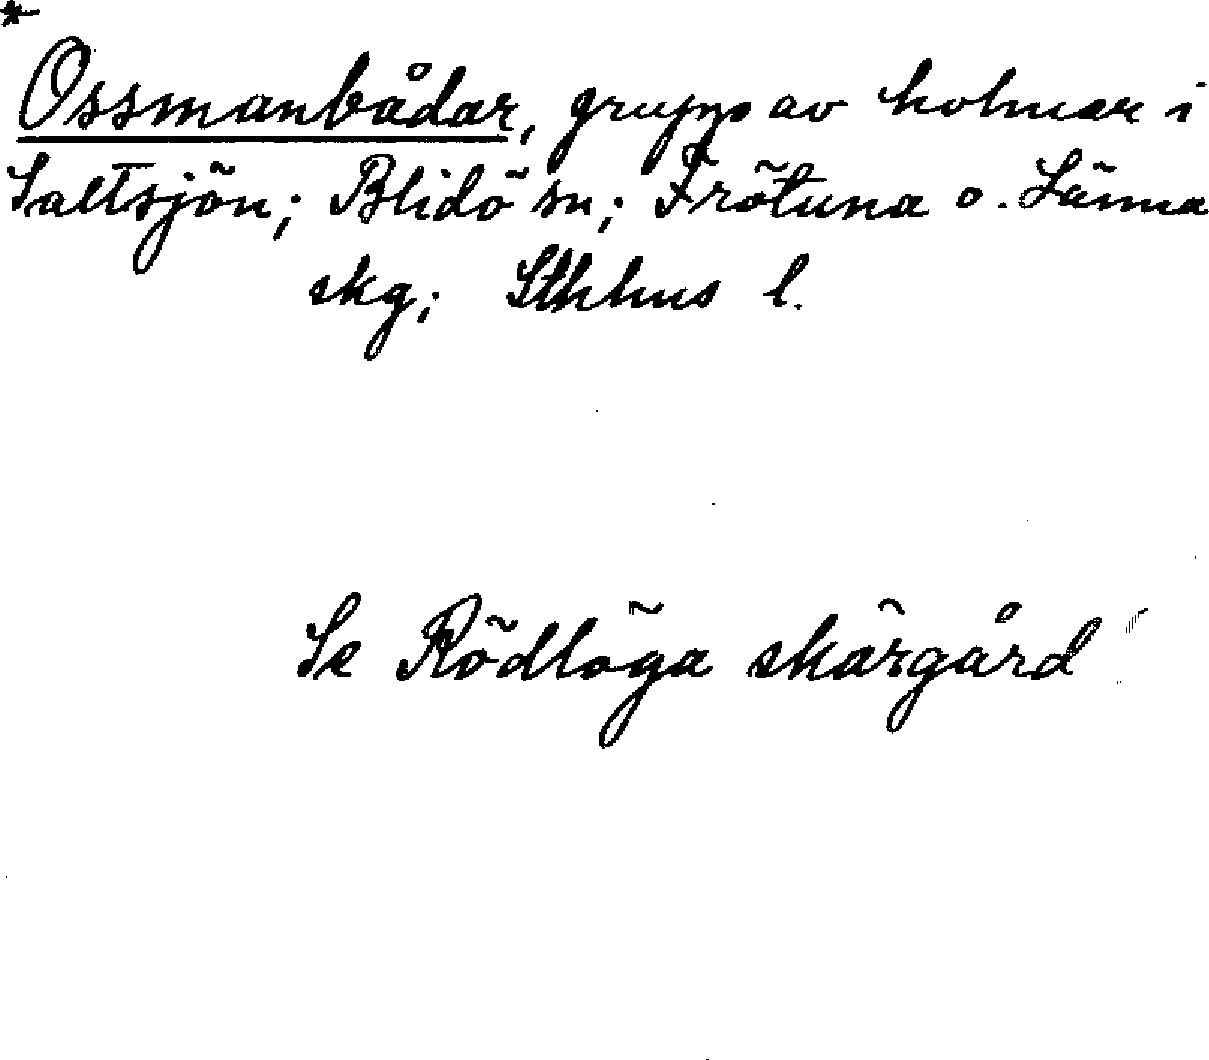 * Ossmanbådar, grupp av holmar i
Saltsjön; Blidö sn; Frötuna o. Länna
skg; Sthlms l.
Se Rödlöga skärgård